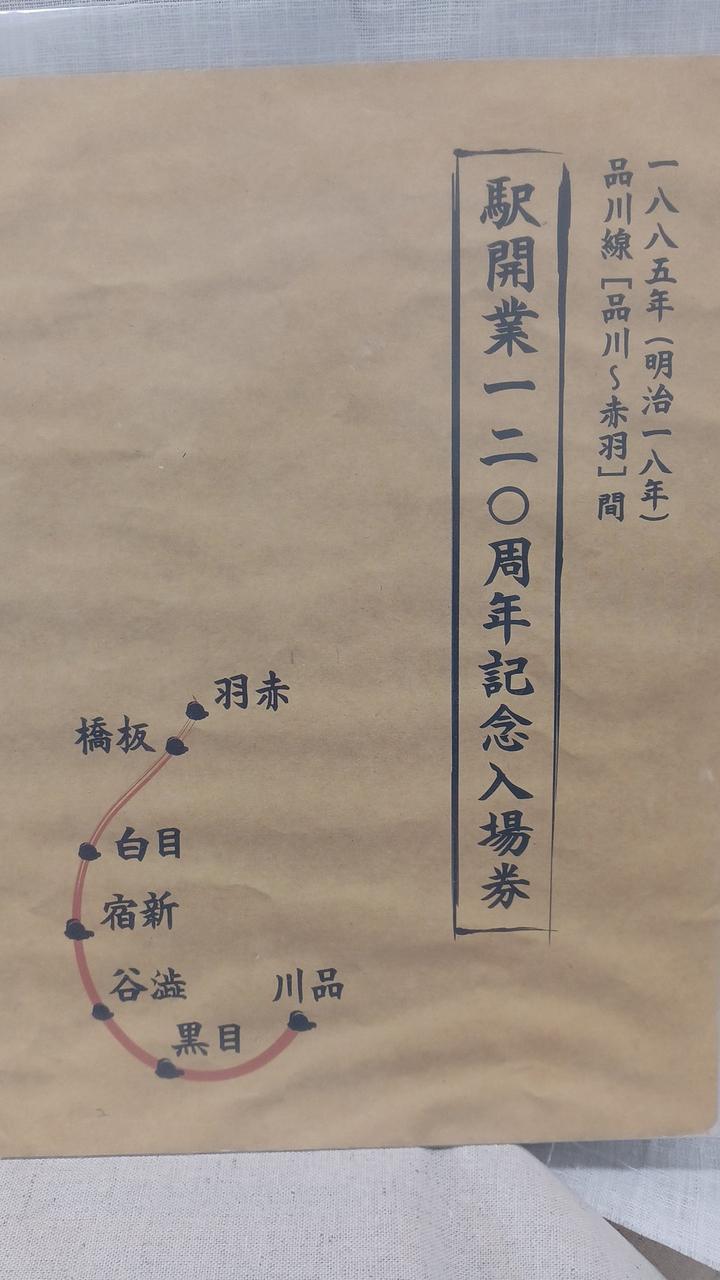 一八八五年(明治一八年)
品川線[品川～赤羽]間
駅開業一二〇周年記念入場券
赤羽
板橋
目白
新宿
澁谷
目黒
品川